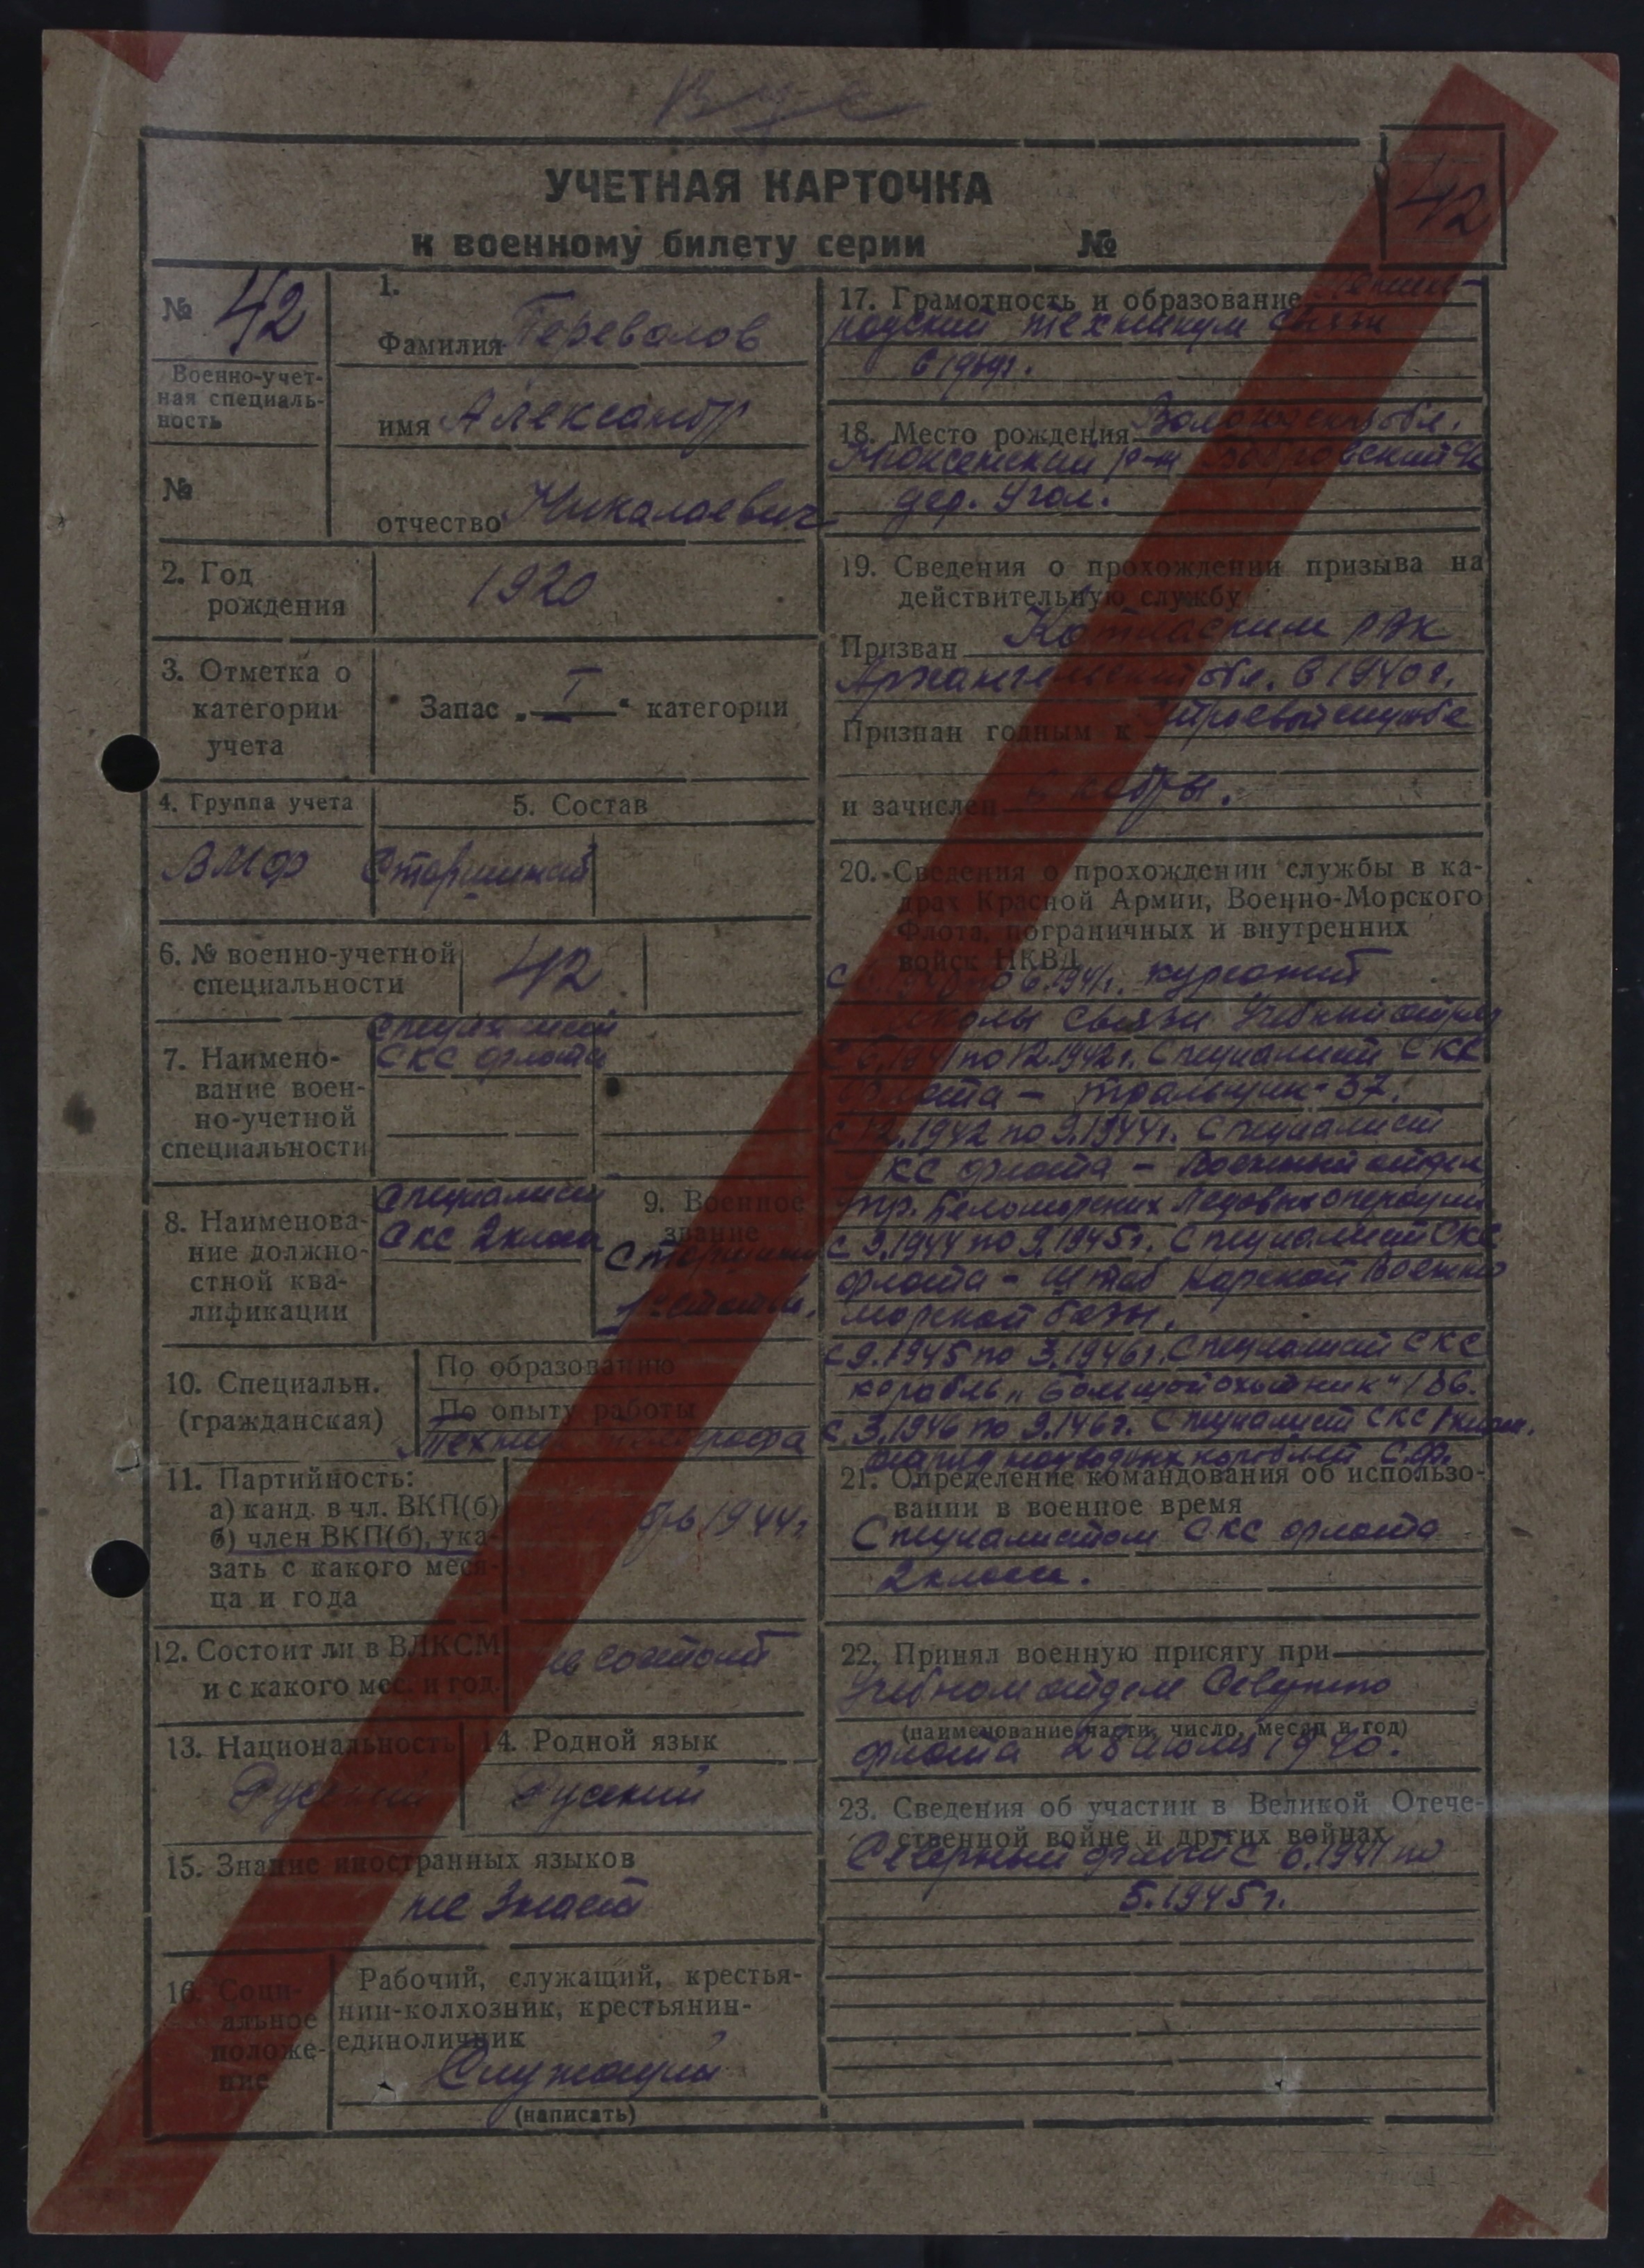 УЧЕТНАЯ КАРТОЧКА
к военному билету серии №
42
№ 42
Военно-учет-
ная специаль-
ность
№
1.
Фамилия Перевалов
имя Александр
отчество Николаевич
2. Год
рождения
1920
3. Отметка о
категории
учета
Запас „ I “ категории
4. Группа учета
5. Состав
ВМФ Старшинский
6. № военно-учетной
специальности
42
7. Наимено-
вание воен-
но-учетной
специальности
Специалист
СКС флота
8. Наименова-
ние должно-
стной ква-
лификации
Специалист
СКС 2 класса
9. Военное
звание
Старшина
1й статьи.
10. Специальн.
(гражданская)
По образованию
По опыту работы
Техник телеграфа
11. Партийность:
а) канд. в чл. ВКП(б)
б) член ВКП(б), ука-
зать с какого меся-
ца и года
1944г
12. Состоит ли в ВЛКСМ
и с какого мес. и год.
не состоит
13. Национальность
Русский
14. Родной язык
Русский
15. Знание иностранных языков
не знает
16. Соци-
альное
положе-
ние
Рабочий, служащий, крестья-
нин-колхозник, крестьянин-
единоличник
Служащий
(написать)
17. Грамотность и образование
техникум связи
18. Место рождения Вологодская обл.
Нюксенский р-н
дер. Угол.
19. Сведения о прохождении призыва на
действительную службу
Призван Котласким РВК
Архангельской обл. в 1940г.
Признан годным к строевой службе
и зачислен в кадры.
20. Сведения о прохождении службы в ка-
драх Красной Армии, Военно-Морского
Флота, пограничных и внутренних
войск НКВД
по 6.1941г. курсант
школы связи Учебный отряд
с 6.1941 по 12.1942г. Специалист СКС
флота – тральщик-37.
с 12.1942 по 9.1944г. Специалист
СКС флота – Военный отдел
упр. Беломорских Ледовых операций
с 9.1944 по 9.1945г. Специалист СКС
флота – Штаб Карской Военно
морской базы.
с 9.1945 по 3.1946г. Специалист СКС
корабль „Большой охотник“ 186.
с 3.1946 по 9.146г. Специалист СКС
кораблей С.Ф.
21. Определение командования об использо-
вании в военное время
Специалистом СКС флота
2 класса.
22. Принял военную присягу при
Учебном отделе Северного
(наименование части, число, месяц и год)
флота 28 июля 1940.
23. Сведения об участии в Великой Отече-
ственной войне и других войнах
Северный флот с 6.1941 по
5.1945г.